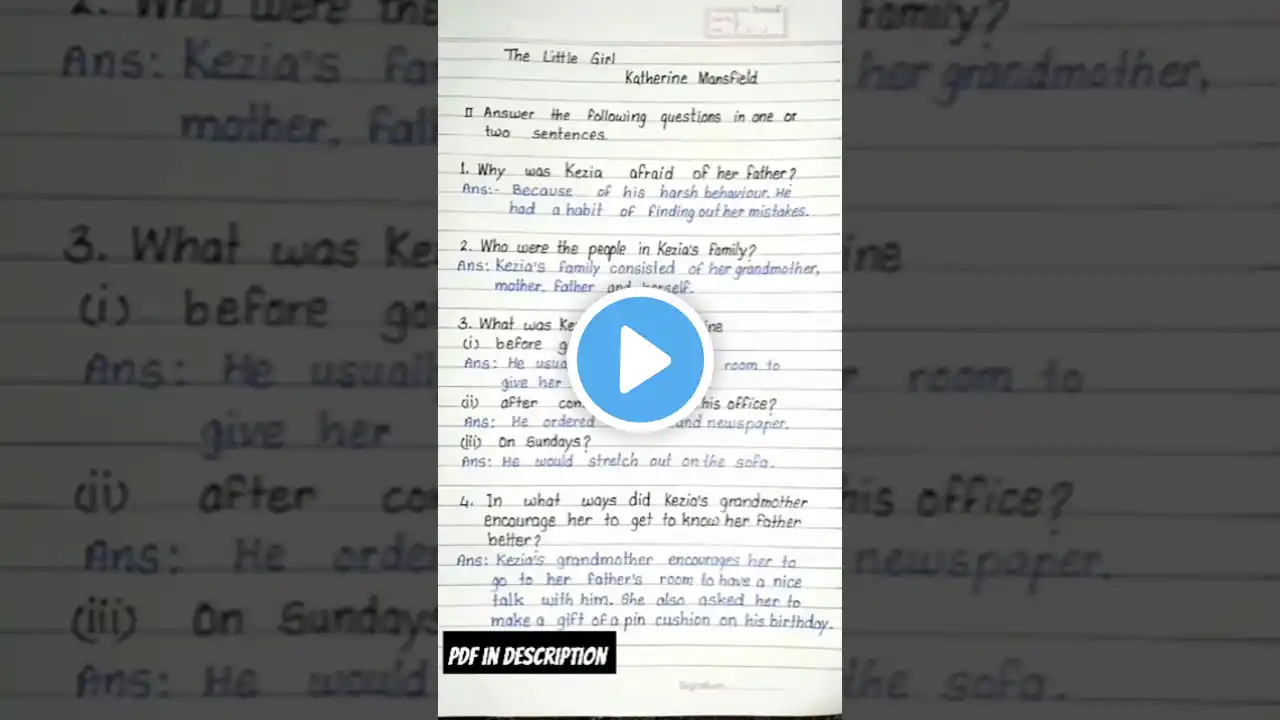 The Little Girl
Katherine Mansfield
II Answer the following questions in one or
two sentences.
1. Why was Kezia afraid of her father?
Ans:- Because of his harsh behaviour. He
had a habit of finding out her mistakes.
2. Who were the people in Kezia's family?
Ans: Kezia's family consisted of her grandmother,
mother, father and herself.
3. What was
(i) before
Ans: He room to
give her
(ii) after his office?
Ans: He ordered and newspaper.
(iii) On Sundays?
Ans: He would stretch out on the sofa.
4. In what ways did Kezia's grandmother
encourage her to get to know her father
better?
Ans: Kezia's grandmother encourages her to
go to her father's room to have a nice
talk with him. She also asked her to
make a gift of a pin cushion on his birthday.
PDF IN DESCRIPTION
Signature